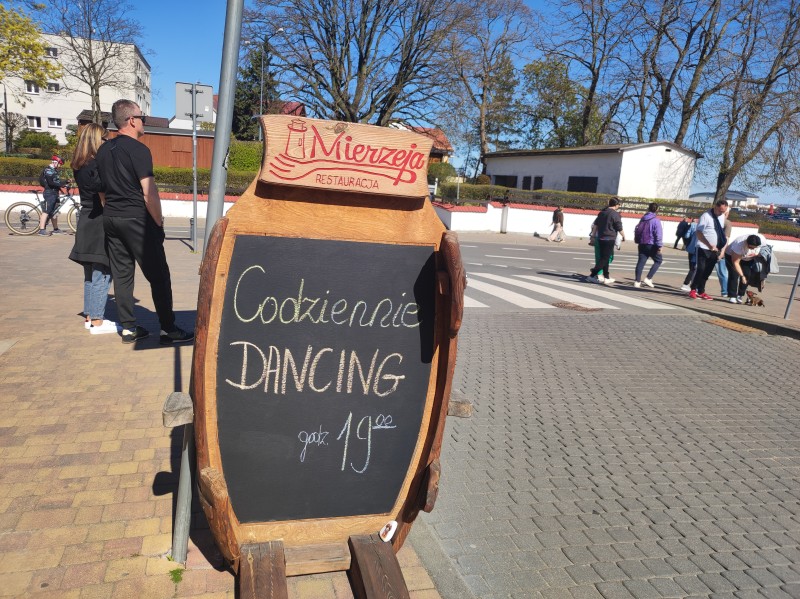 Mierzeja
RESTAURACJA
Codziennie
DANCING
godz. 19⁰⁰